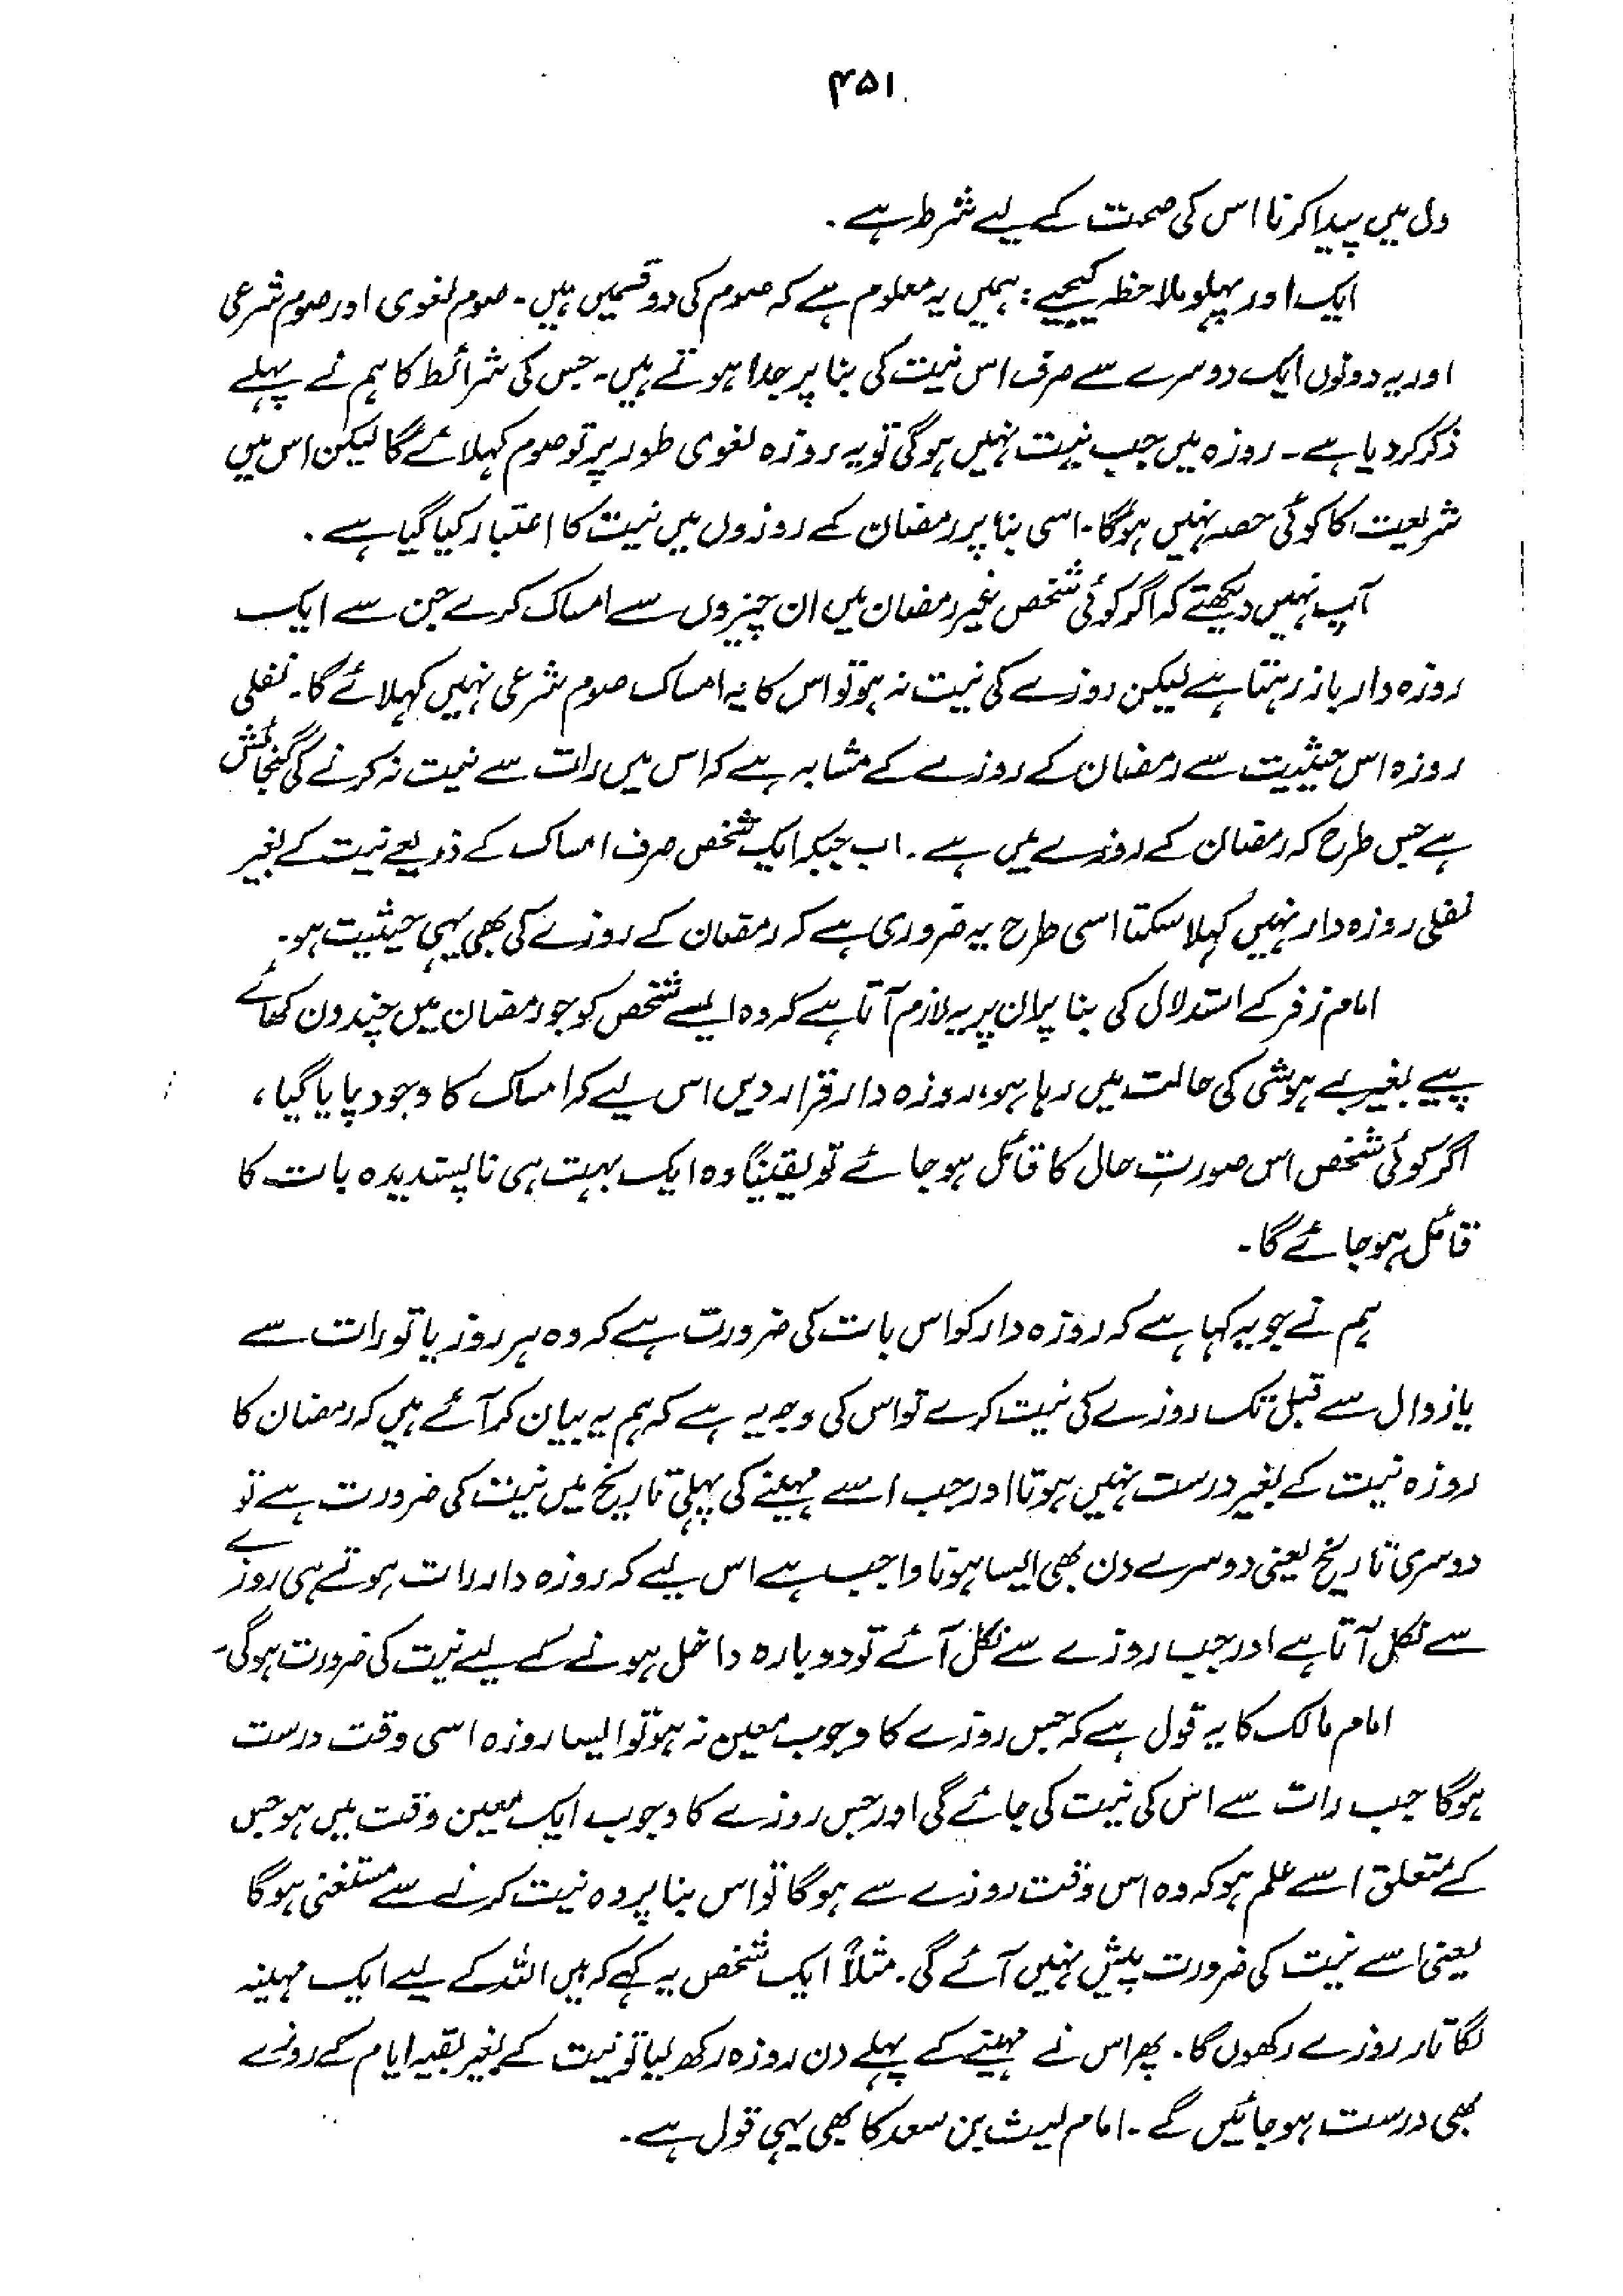 ۴۵۱
دل میں پیدا کرنا اس کی صحت کے لیے شرط ہے۔
ایک اور پہلو ملاحظہ کیجیے: ہمیں یہ معلوم ہے کہ صوم کی دو قسمیں ہیں۔ صوم لغوی اور صوم شرعی
اور یہ دونوں ایک دوسرے سے صرف اس نیت کی بنا پر جدا ہوتے ہیں۔ جس کی شرائط کا ہم نے پہلے
ذکر کر دیا ہے۔ روزہ میں جب نیت نہیں ہوگی تو یہ روزہ لغوی طور پر تو صوم کہلائے گا لیکن اس میں
شریعت کا کوئی حصہ نہیں ہوگا۔ اسی بنا پر رمضان کے روزوں میں نیت کا اعتبار کیا گیا ہے۔
آپ نہیں دیکھتے کہ اگر کوئی شخص غیر رمضان میں ان چیزوں سے امساک کرے جن سے ایک
روزہ دار باز رہتا ہے لیکن روزے کی نیت نہ ہو تو اس کا یہ امساک صوم شرعی نہیں کہلائے گا۔ نفلی
روزہ اس حیثیت سے رمضان کے روزے کے مشابہ ہے کہ اس میں رات سے نیت نہ کرنے کی گنجائش
ہے جس طرح کہ رمضان کے روزے میں ہے۔ اب جبکہ ایک شخص صرف امساک کے ذریعے نیت کے بغیر
نفلی روزہ دار نہیں کہلا سکتا اسی طرح یہ ضروری ہے کہ رمضان کے روزے کی بھی یہی حیثیت ہو۔
امام زفر کے استدلال کی بنا پر ان پر یہ لازم آتا ہے کہ وہ ایسے شخص کو جو رمضان میں چند دن کھائے
پیے بغیر بے ہوشی کی حالت میں رہا ہو، روزہ دار قرار دیں اس لیے کہ امساک کا وجود پایا گیا،
اگر کوئی شخص اس صورتِ حال کا قائل ہو جائے تو یقیناً وہ ایک بہت ہی ناپسندیدہ بات کا
قائل ہو جائے گا۔
ہم نے جو یہ کہا ہے کہ روزہ دار کو اس بات کی ضرورت ہے کہ وہ ہر روز یا تو رات سے
یا زوال سے قبل تک روزے کی نیت کرے تو اس کی وجہ یہ ہے کہ ہم یہ بیان کر آئے ہیں کہ رمضان کا
روزہ نیت کے بغیر درست نہیں ہوتا اور جب اسے مہینے کی پہلی تاریخ میں نیت کی ضرورت ہے تو
دوسری تاریخ یعنی دوسرے دن بھی ایسا ہونا واجب ہے اس لیے کہ روزہ دار رات ہوتے ہی روزے
سے نکل آتا ہے اور جب روزے سے نکل آئے تو دوبارہ داخل ہونے کے لیے نیت کی ضرورت ہوگی۔
امام مالک کا یہ قول ہے کہ جس روزے کا وجوب معین نہ ہو تو ایسا روزہ اسی وقت درست
ہوگا جب رات سے اس کی نیت کی جائے گی اور جس روزے کا وجوب ایک معین وقت میں ہو جس
کے متعلق اسے علم ہو کہ وہ اس وقت روزے سے ہوگا تو اس بنا پر وہ نیت کرنے سے مستغنی ہوگا
یعنی اسے نیت کی ضرورت پیش نہیں آئے گی۔ مثلاً ایک شخص یہ کہے کہ میں اللہ کے لیے ایک مہینہ
لگاتار روزے رکھوں گا۔ پھر اس نے مہینے کے پہلے دن روزہ رکھ لیا تو نیت کے بغیر بقیہ ایام کے روزے
بھی درست ہو جائیں گے۔ امام لیث بن سعد کا بھی یہی قول ہے۔